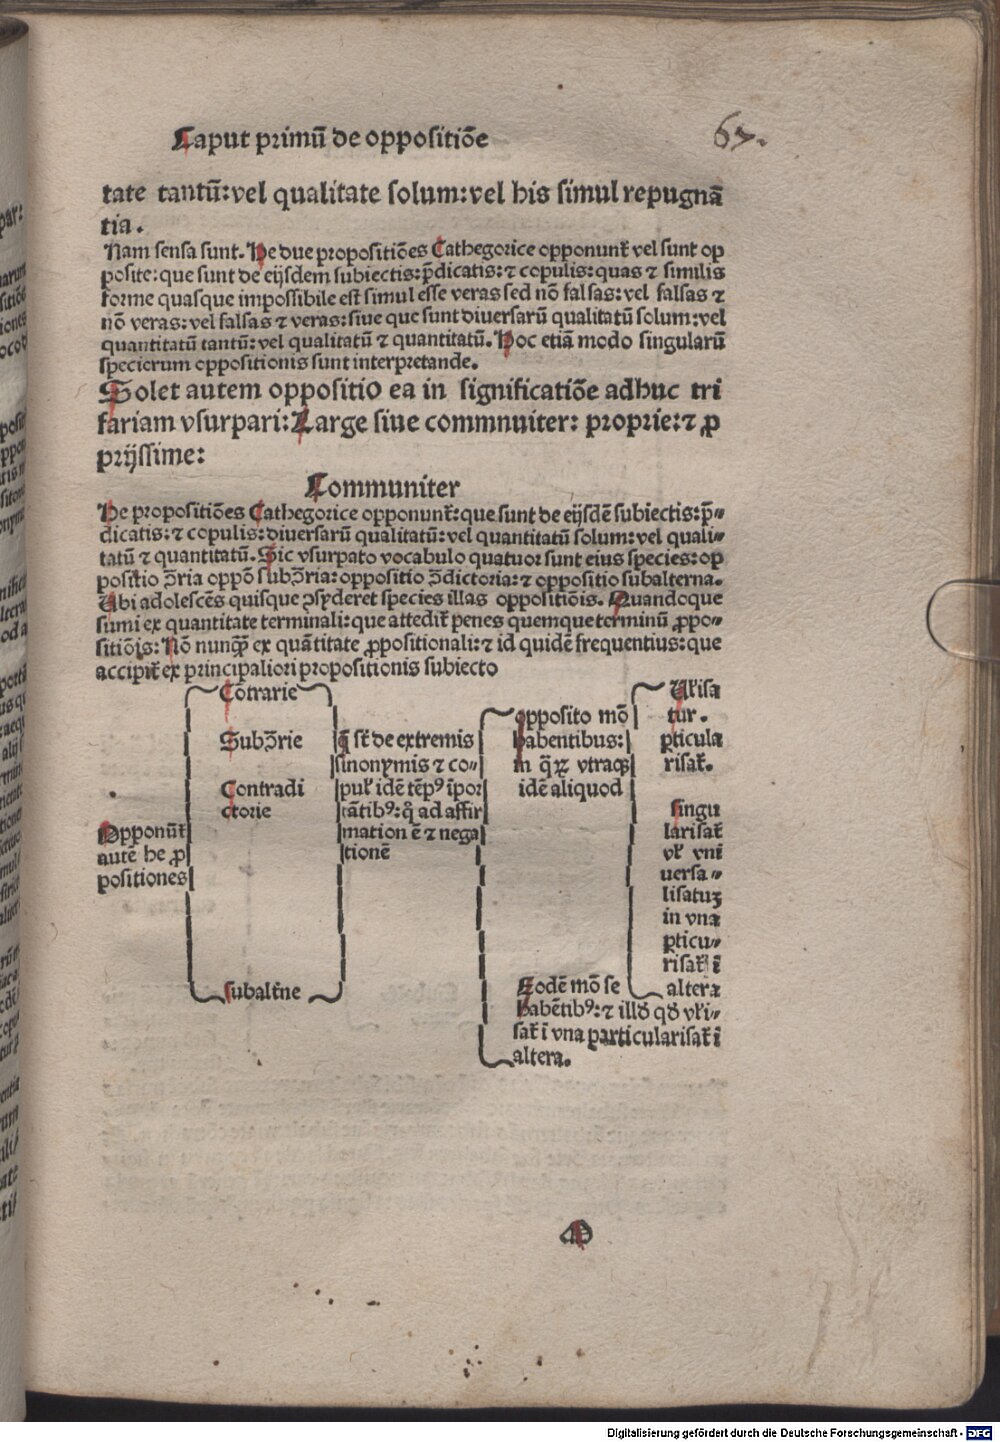 Caput primū de oppositiōe
67.
tate tantū: vel qualitate solum: vel his simul repugnā
tia.
Nam sensa sunt. He due propositiōes Cathegorice opponunt᷑ vel sunt op
posite: que sunt de eijsdem subiectis: p̄dicatis: ⁊ copulis: quas ⁊ similis
forme quasque impossibile est simul esse veras sed nō falsas: vel falsas ⁊
nō veras: vel falsas ⁊ veras: siue que sunt diuersarū qualitatū solum: vel
quantitatū tantū: vel qualitatū ⁊ quantitatū. Hoc etiā modo singularū
specierum oppositionis sunt interpretande.
Solet autem oppositio ea in significatiōe adhuc tri
fariam vsurpari: Large siue commnuiter: proprie: ⁊ ꝓ
prijssime:
Communiter
He propositiōes Cathegorice opponunt᷑: que sunt de eijsdē subiectis: p̄-
dicatis: ⁊ copulis: diuersarū qualitatū: vel quantitatū solum: vel quali-
tatū ⁊ quantitatū. Sic vsurpato vocabulo quatuor sunt eius species: op
positio ↄ̄ria oppō subↄ̄ria: oppositio ↄ̄dictoria: ⁊ oppositio subalterna.
Ubi adolescēs quisque species illas oppositiōis. Quandoque
sumi ex quantitate terminali: que attēdit᷑ penes quemque terminū ꝓpo-
sitiōis: Nō nunqᷓ ex quātitate ꝓpositionali: ⁊ id quidē frequentius: que
accipit᷑ ex principaliori propositionis subiecto
Opponūt᷑
autē he ꝓ
positiones
Cōtrarie
Subↄ̄rie
Contradi
ctorie
subalt᷑ne
q̄ st̄ de extremis
sinonymis ⁊ co-
pul᷑ idē tēpꝰ īpor
tātibꝰ: ad affir
mationē ⁊ nega
tionē
opposito mō
habentibus:
in vtraqꝫ
idē aliquod
Eodē mō se
habētibꝰ: ⁊ illđ qđ vl᷑i-
sat᷑ ī vna particularisat᷑ ī
altera.
Vl᷑isa
tur.
ꝑticula
risat᷑.
singu
larisat᷑
vl᷑ vni
uersa-
lisatuꝛ
in vna
ꝑticu-
risat᷑ ī
altera